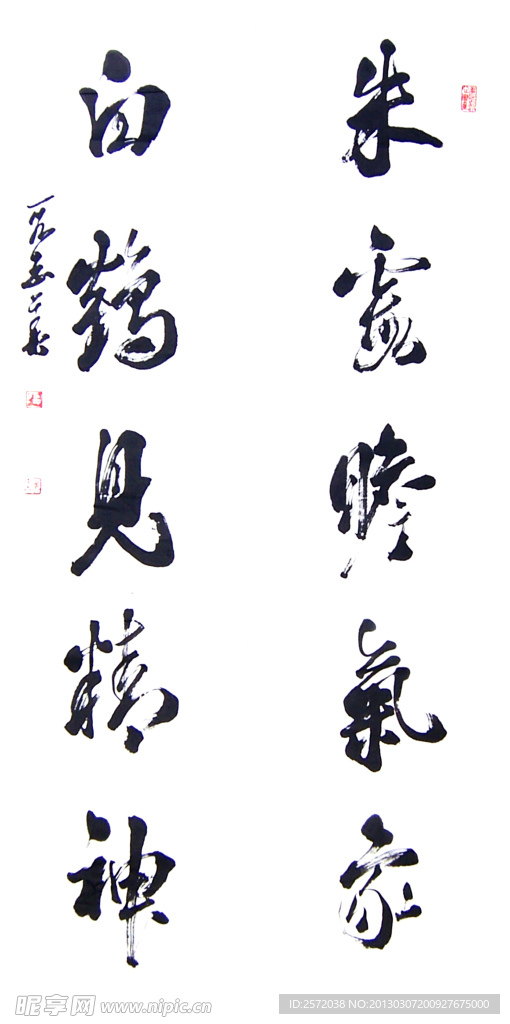 朱霞瞻氣象
白鶴見精神
昵享网 www.nipic.cn
ID:2572038 NO:20130307200927675000